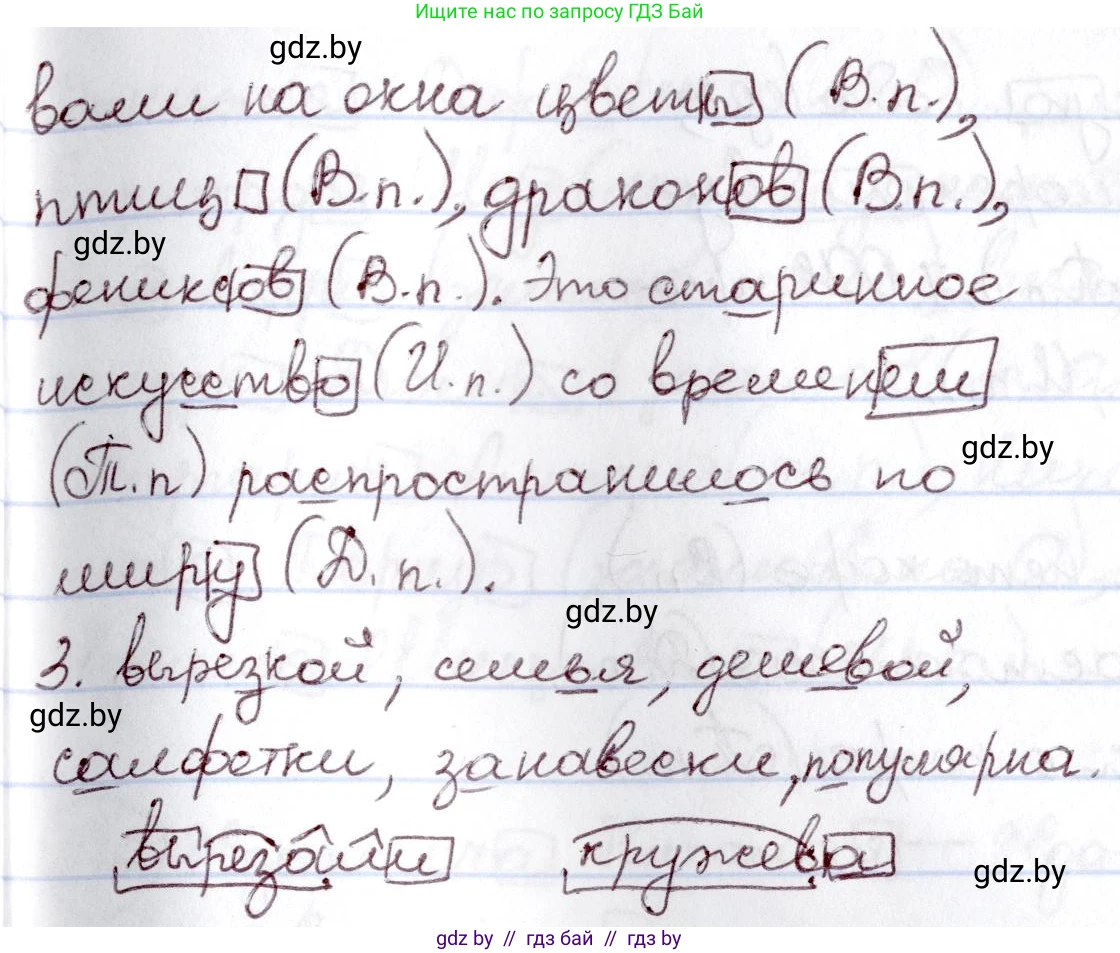 Ищите нас по запросу ГДЗ Бай
gdz.by
вали на окна цветы (В.п.),
птиц (В.п.), драконов (В.п.),
gdz.by
фениксов (В.п.). Это старинное
искусство (И.п.) со временем
gdz.by
(Т.п) распространилось по
миру (Д.п.).
gdz.by
3. вырезкой, семья, дешевой,
gdz.by
салфетки, занавески, популярна.
вырезали кружева
gdz.by
gdz by // гдз бай // gdz by